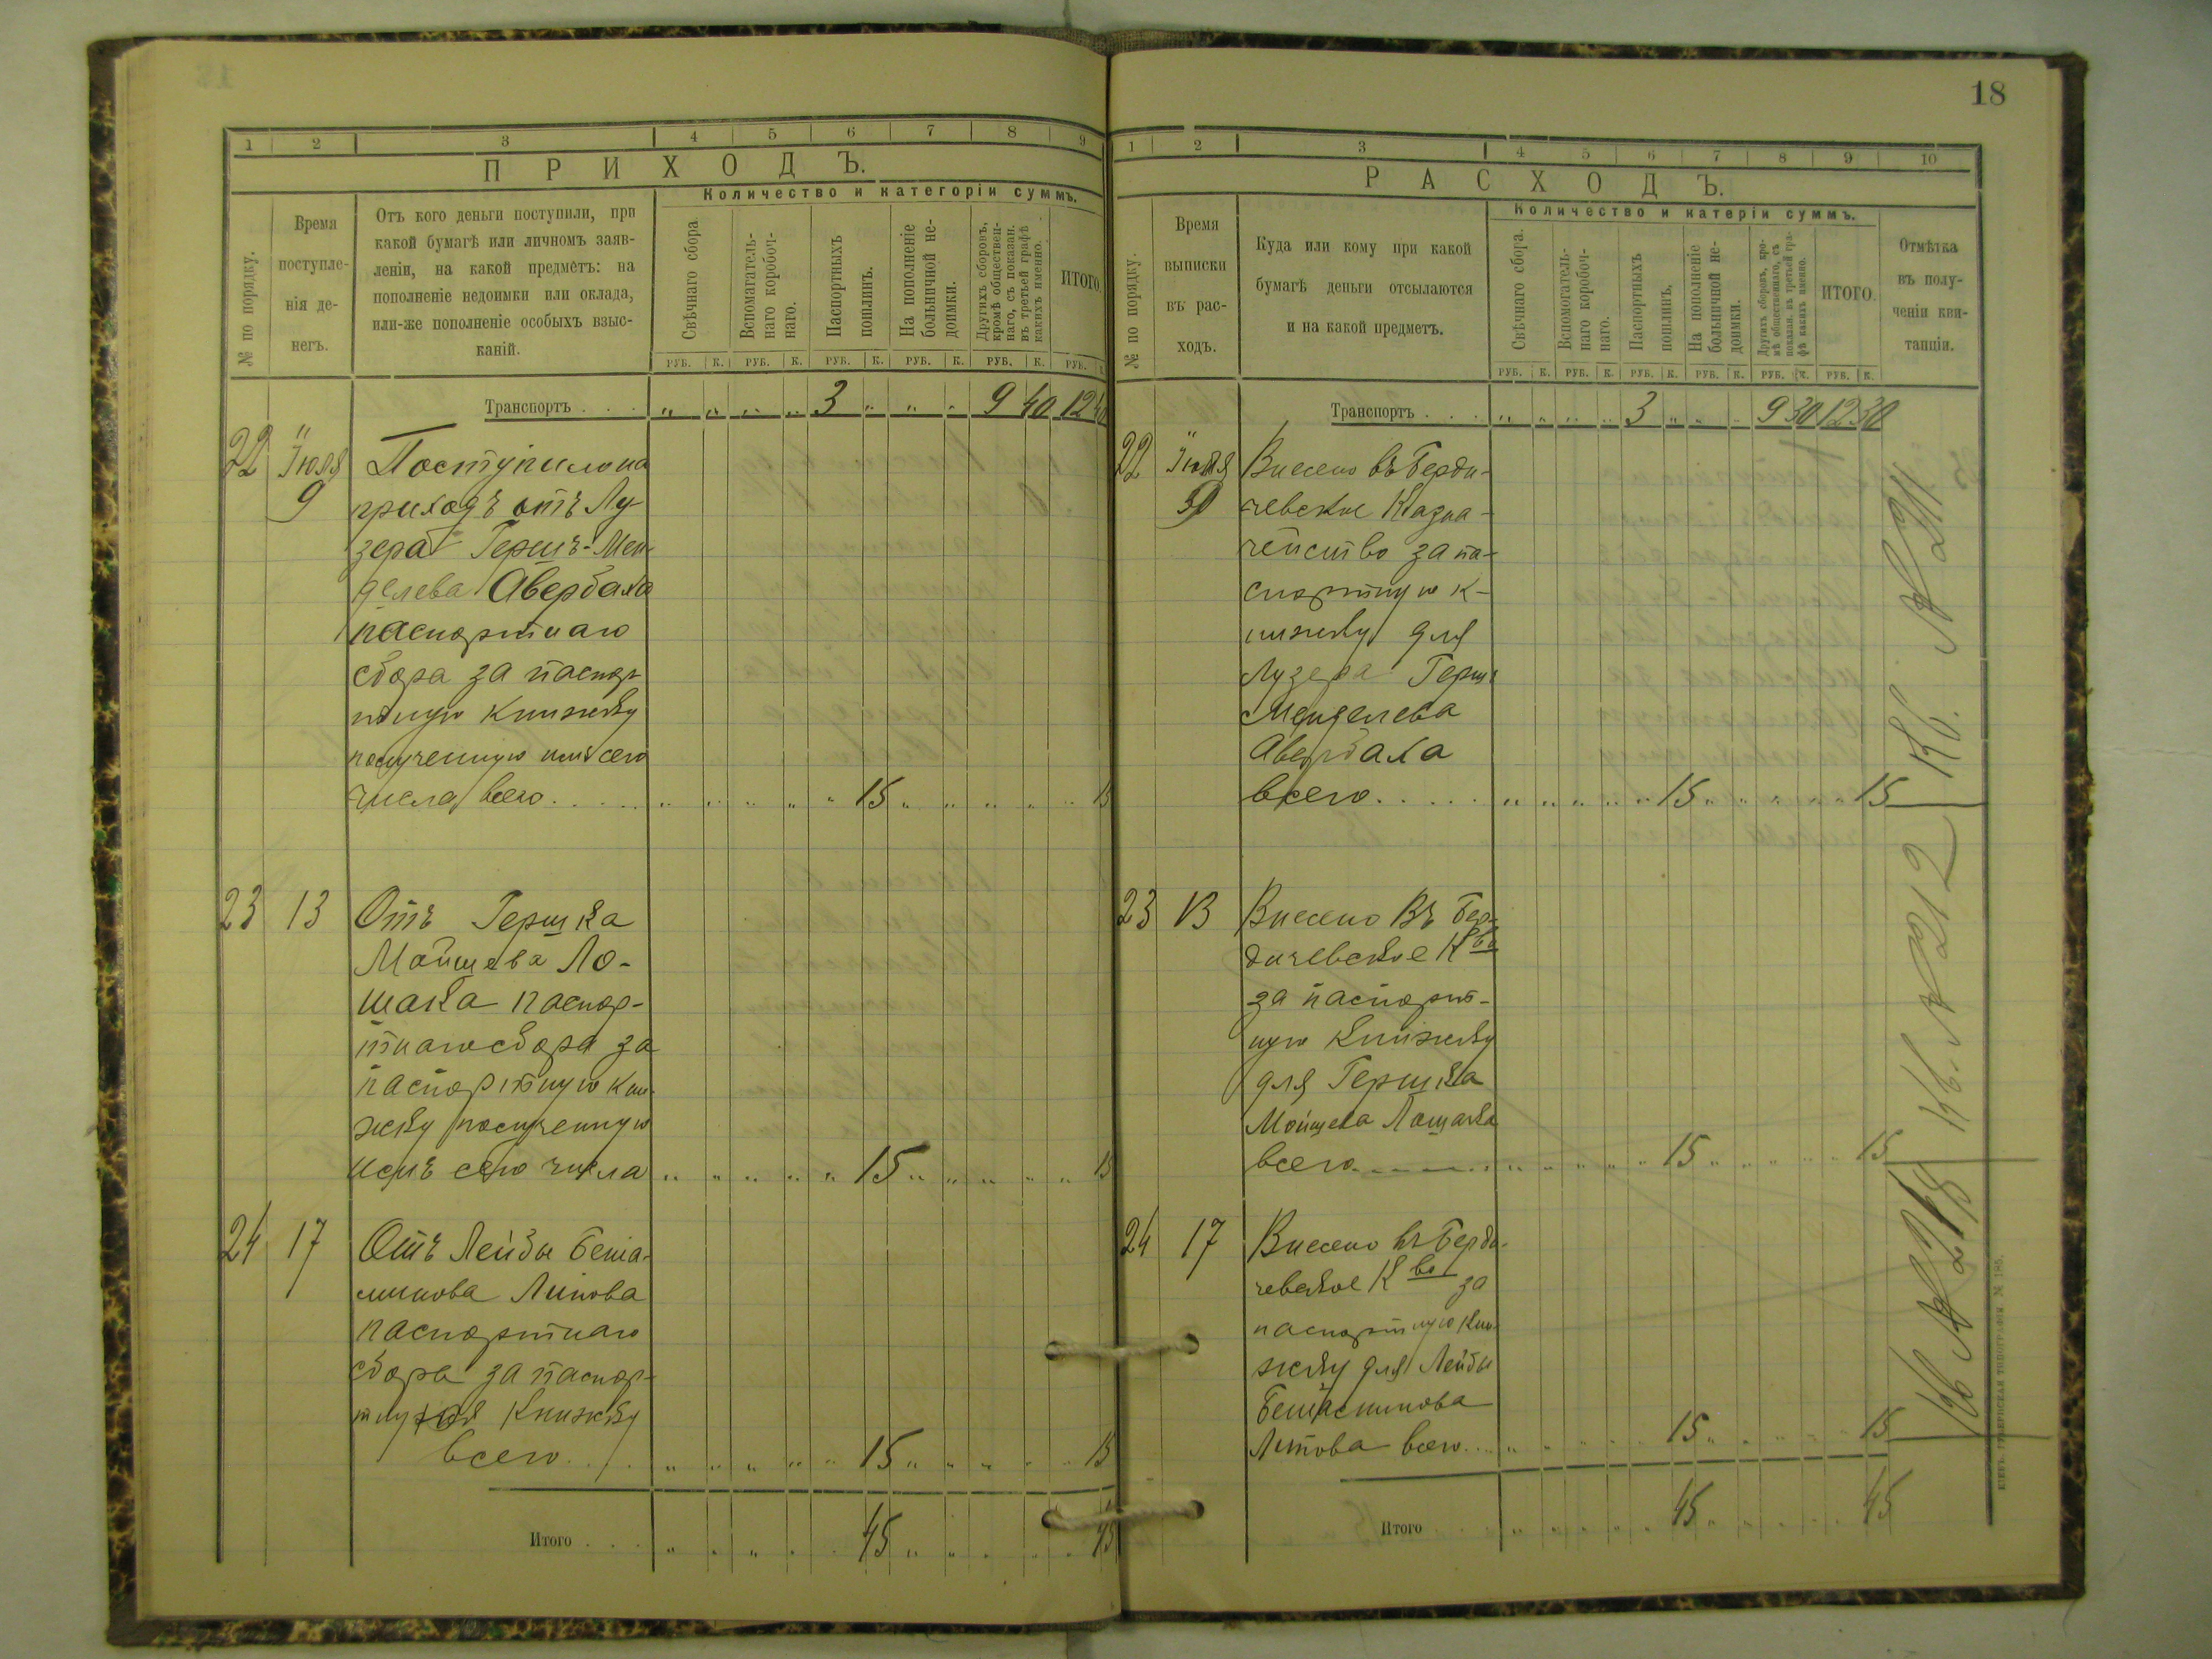 18
1 2 3 4 5 6 7 8 9
ПРИХОДЪ.
Количество и категоріи суммъ.
№ по порядку.
Время
поступле-
нія де-
негъ.
Отъ кого деньги поступили, при
какой бумагѣ или личномъ заяв-
леніи, на какой предметъ: на
пополненіе недоимки или оклада,
или-же пополненіе особыхъ взыс-
каній.
Свѣчнаго сбора
Вспомагатель-
наго коробоч-
наго.
Паспортныхъ
пошлинъ.
На пополненіе
больничной не-
доимки.
Другихъ сборовъ,
кромѣ обществен-
наго, съ показан.
въ третьей графѣ
какихъ именно.
ИТОГО.
РУБ. К. РУБ. К. РУБ. К. РУБ. К. РУБ. К. РУБ. К.
Транспортъ . . . „ „ „ „ 3 „ „ „ 9 40 12 40
22 Іюля Поступило на
9 приходъ отъ Лу-
зера Гершъ-Мен-
делева Авербаха
паспортнаго
сбора за паспор-
тную книжку
полученную имъ сего
числа всего . . . . „ „ „ „ „ 15 „ „ „ „ „ 15
23 13 Отъ Гершка
Мойшева Ло-
шака паспор-
тнаго сбора за
паспортную кни-
жку полученную
имъ сего числа „ „ „ „ „ 15 „ „ „ „ „ 15
24 17 Отъ Лейбы Бенia-
минова Литова
паспортнаго
сбора за паспор-
тную книжку
всего . . . „ „ „ „ „ 15 „ „ „ „ „ 15
Итого . . . „ „ „ „ „ 45 „ „ „ „ „ 45
1 2 3 4 5 6 7 8 9 10
РАСХОДЪ.
Количество и катеріи суммъ.
№ по порядку.
Время
выписки
въ рас-
ходъ.
Куда или кому при какой
бумагѣ деньги отсылаются
и на какой предметъ.
Свѣчнаго сбора.
Вспомогатель-
наго коробоч-
наго.
Паспортныхъ
пошлинъ.
На пополненіе
больничной не-
доимки.
Другихъ сборовъ, кро-
мѣ общественнаго, съ
показан. въ третьей гра-
фѣ какихъ именно.
ИТОГО.
Отмѣтка
въ полу-
ченіи кви-
танціи.
РУБ. К. РУБ. К. РУБ. К. РУБ. К. РУБ. К. РУБ. К.
Транспортъ . . . „ „ „ „ 3 „ „ „ 9 30 12 30
22 Іюля Внесено въ Берди-
9 чевское Казна-
чейство за па-
спортную к-
нижку для
Лузера Гершъ
Менделева
Авербаха
всего . . . . . „ „ „ „ „ 15 „ „ „ „ „ 15
Кв. № 211
23 13 Внесено въ Бер-
дичевское К-во
за паспорт-
ную книжку
для Гершка
Мойшева Лошака
всего . . . . . „ „ „ „ „ 15 „ „ „ „ „ 15
Кв. № 212
24 17 Внесено въ Берди-
чевское К-во за
паспортную кни-
жку для Лейбы
Беніаминова
Литова всего . . . „ „ „ „ „ 15 „ „ „ „ „ 15
Кв № 218
Итого . . . „ „ „ „ „ 45 „ „ „ „ „ 45
КІЕВЪ. ГУБЕРНСКАЯ ТИПОГРАФІЯ. № 185.